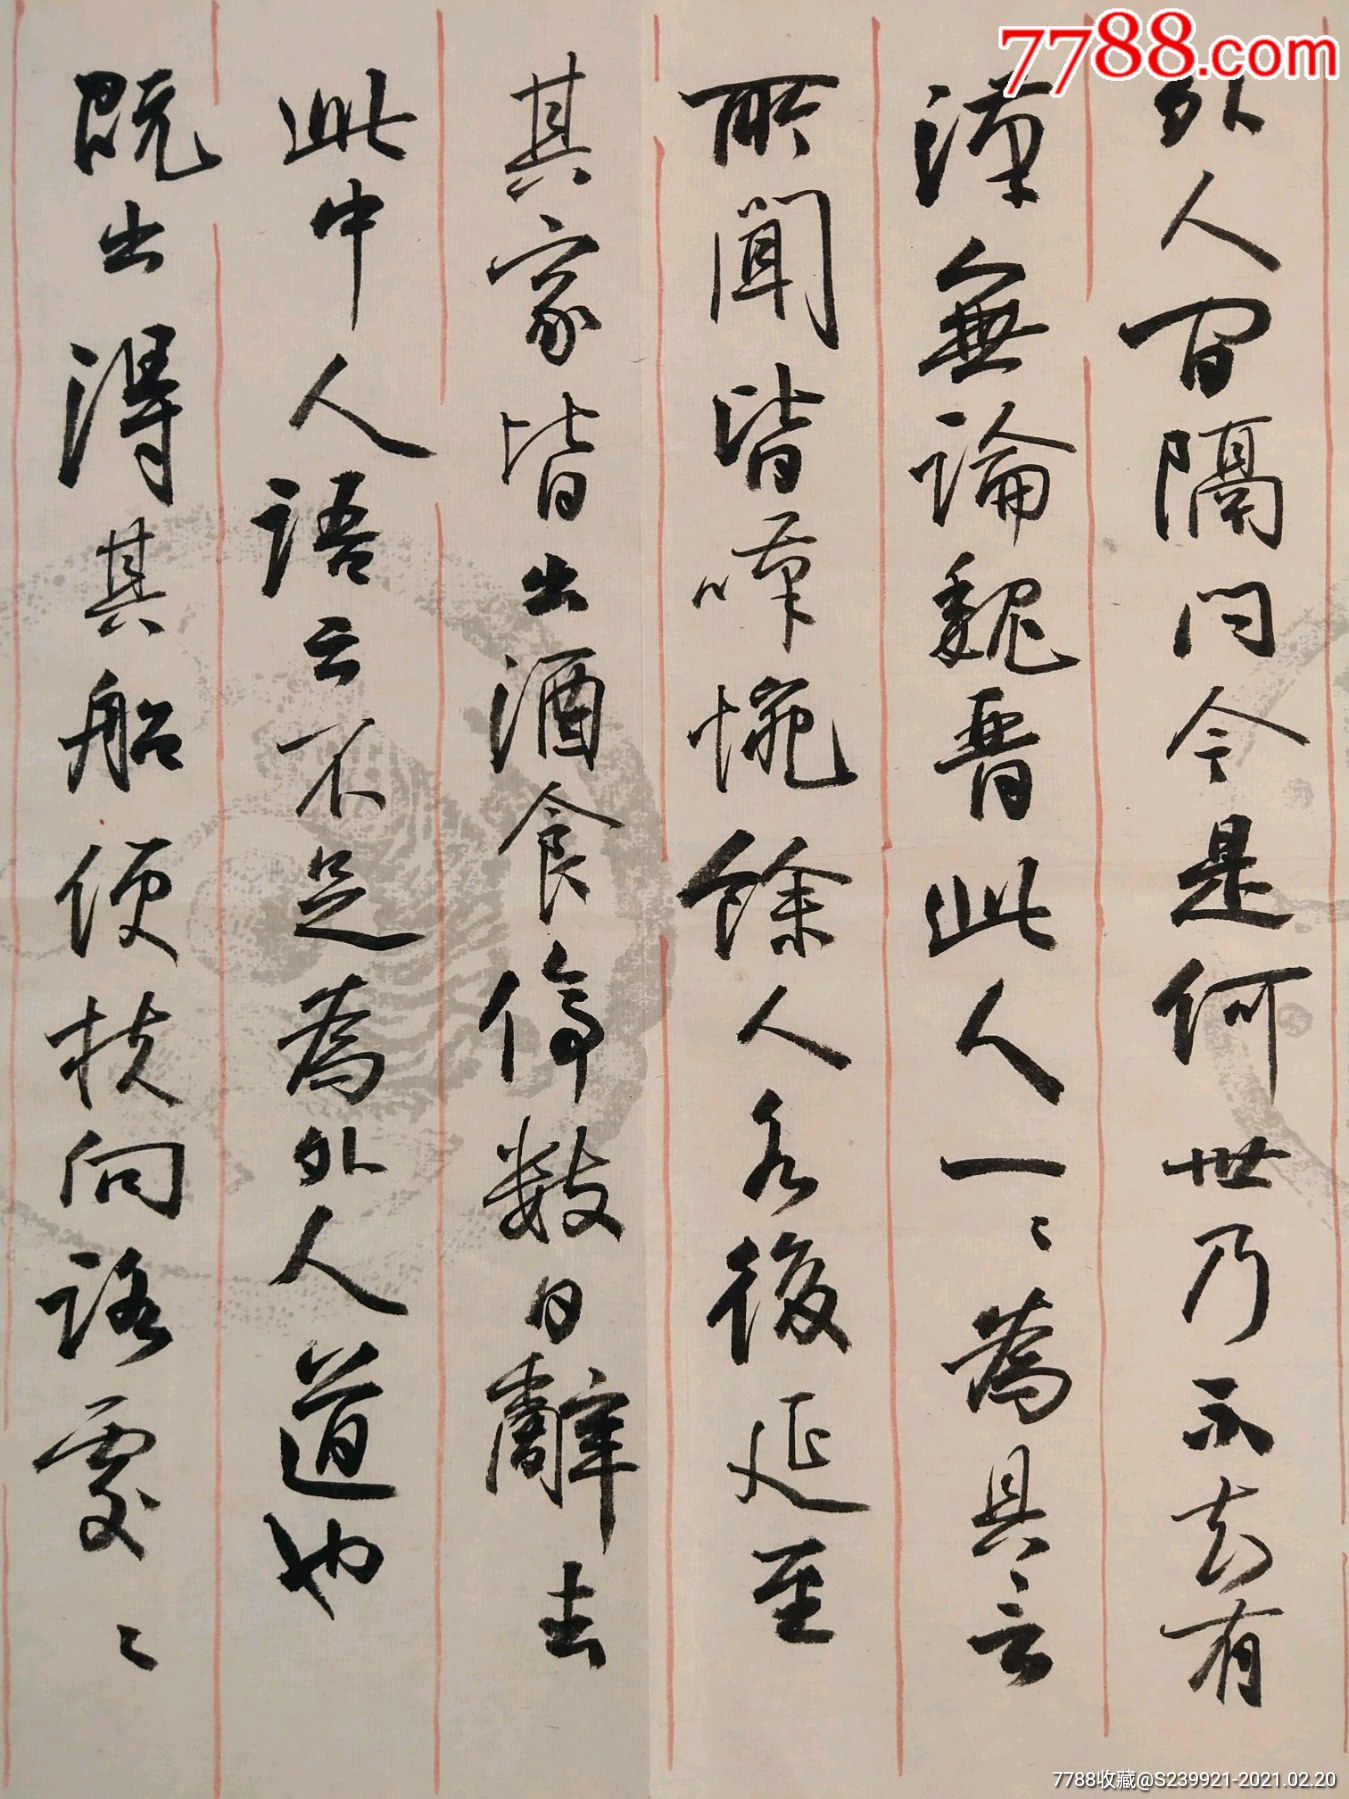 7788.com
外人间隔问今是何世乃不知有
漢無論魏晋此人一〻為具言
所聞皆嘆惋餘人各復延至
其家皆出酒食停数日辭去
此中人語云不足為外人道也
既出得其船便扶向路處〻
7788收藏@S239921-2021.02.20